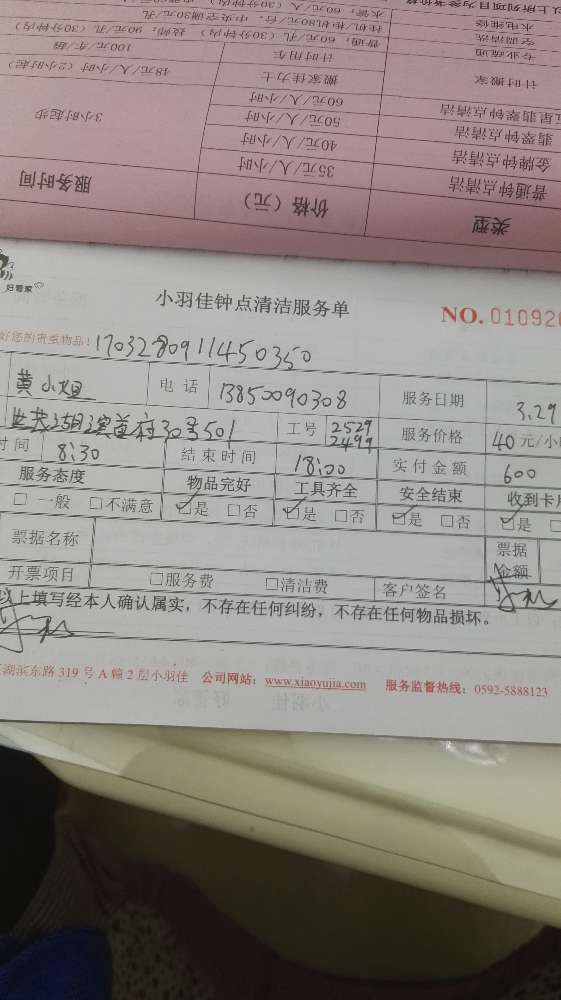 类型 价格（元） 服务时间
普通钟点清洁 35元/人/小时
金牌钟点清洁 40元/人/小时
翡翠钟点清洁 50元/人/小时 3小时起步
星翡翠钟点清洁 60元/人/小时
计时搬家 搬家佳力士 48元/人/小时（2小时起）
计时用车 100元/车/趟
专业疏通 普通：60元/孔（30分钟内）
空调清洗 挂机/柜机80元/台，中央空调30元/孔
水电维修
以上所列项目为参考价格
好管家
小羽佳钟点清洁服务单
NO. 010920
好您的贵重物品！1703280911450350
黄小姐 电话 13850090308 服务日期 3.29
30号501 工号 2529 2499 服务价格 40元/小
时间 8:30 结束时间 18:00 实付金额 600
服务态度 物品完好 工具齐全 安全结束 收到卡片
□一般 □不满意 ☑是 □否 ☑是 □否 ☑是 □否 ☑是
票据名称 票据金额
开票项目 □服务费 □清洁费 客户签名
以上填写经本人确认属实，不存在任何纠纷，不存在任何物品损坏。
湖滨东路319号A幢2层小羽佳 公司网站：www.xiaoyujia.com 服务监督热线：0592-5888123